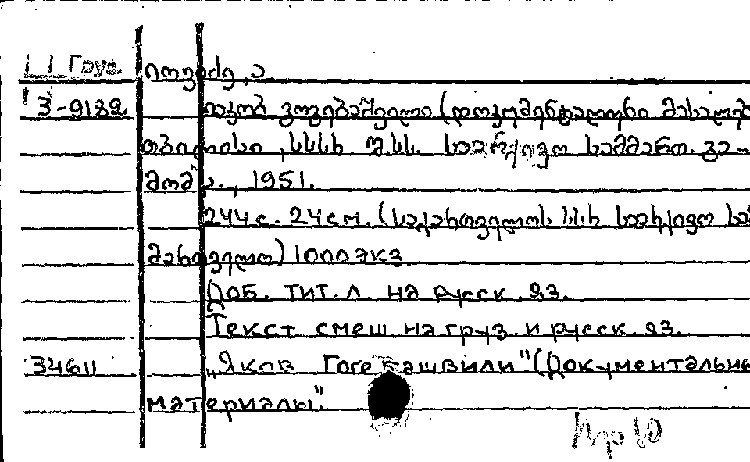 Груз. იოვიძე, ა
3-9182 იაკობ გოგებაშვილი (დოკუმენტალური მასალებ
თბილისი, სსსრ შ.ს.ს. საარქივო სამმართ. გა-
მომც., 1951.
244 с. 24 см. (საქართველოს სსრ საარქივო სა
მართველო) 1000 экз
Доб. тит. л на русск. яз.
Текст смеш на груз и русск. яз.
34611 „Яков Гогебашвили" (Документальны
материалы".